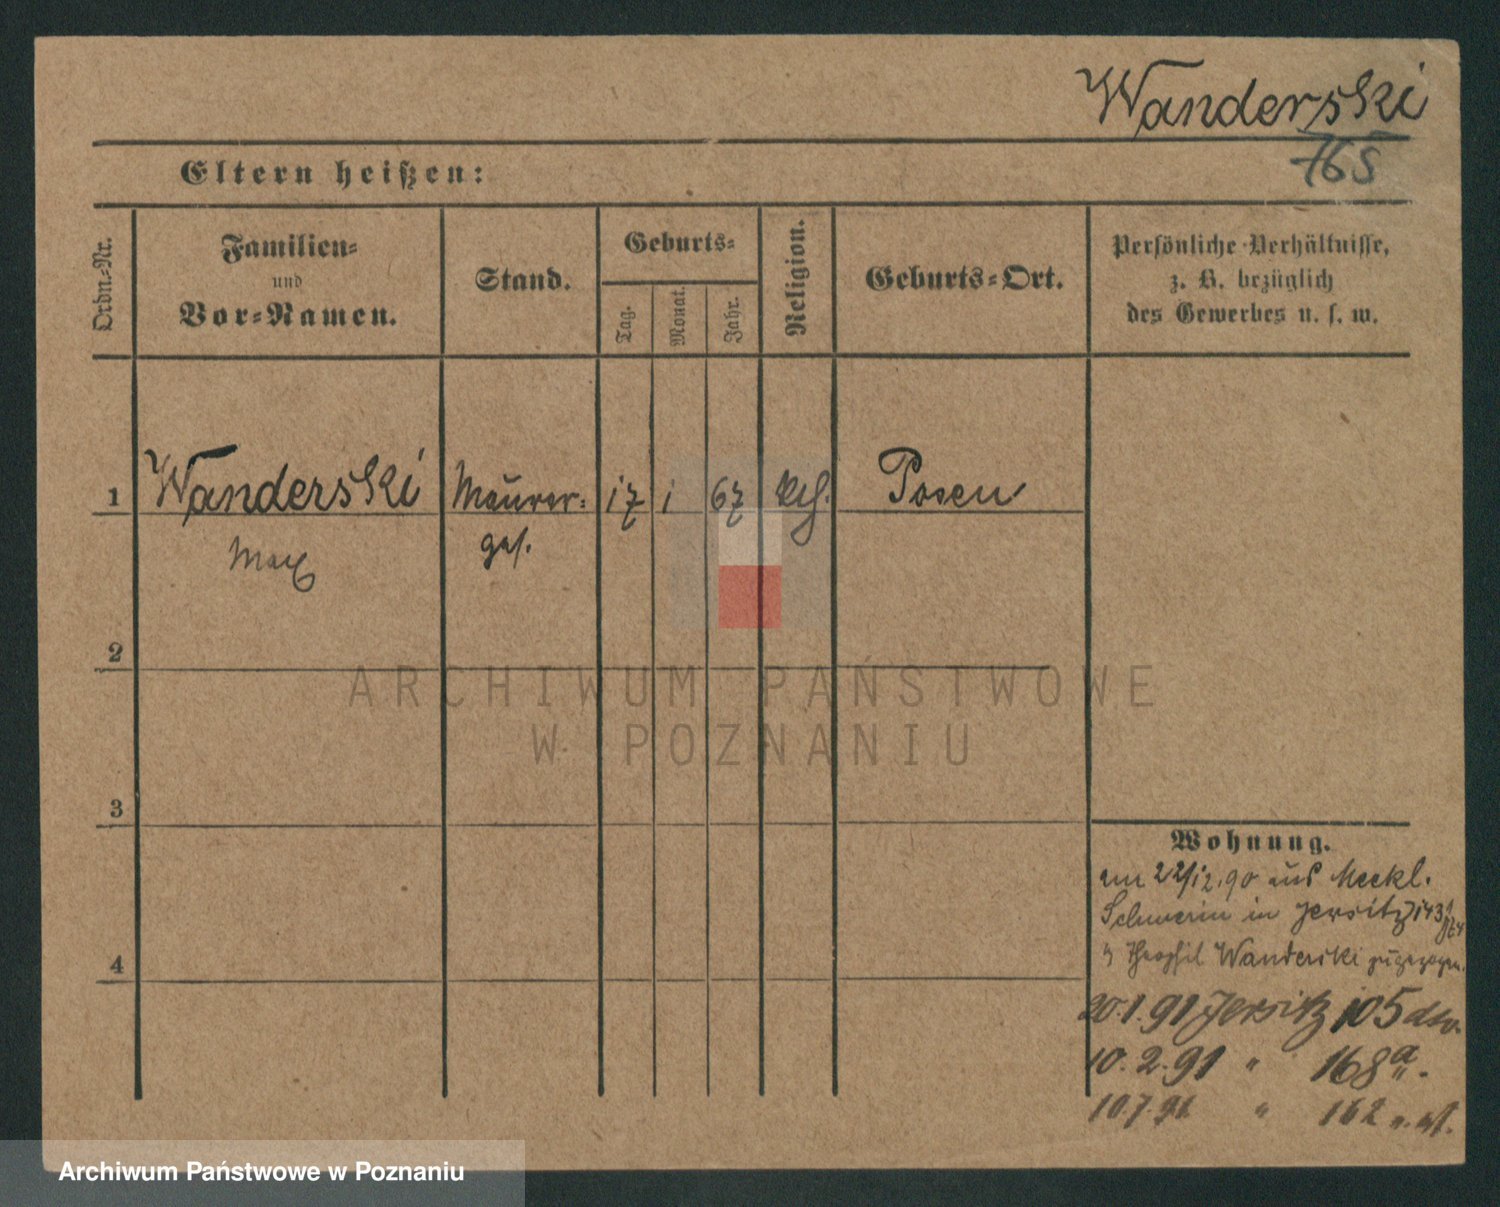 Wanderski
765
Eltern heißen:
Ordn.-Nr.
Familien-
und
Vor-Namen.
Stand.
Geburts-
Tag.
Monat.
Jahr.
Religion.
Geburts-Ort.
Persönliche Verhältnisse,
z. B. bezüglich
des Gewerbes u. s. w.
1 Wanderski Maurer- 17 1 67 Posen
Max ges.
2
3
4
ARCHIWUM PAŃSTWOWE
W POZNANIU
Wohnung.
am 22/12.90 aus Meckl.
Schwerin in Jersitz 143
Theophil Wanderski zugezogen.
20.1.91 Jersitz 105
10.2.91 " 168a
10.7.91 " 162
Archiwum Państwowe w Poznaniu